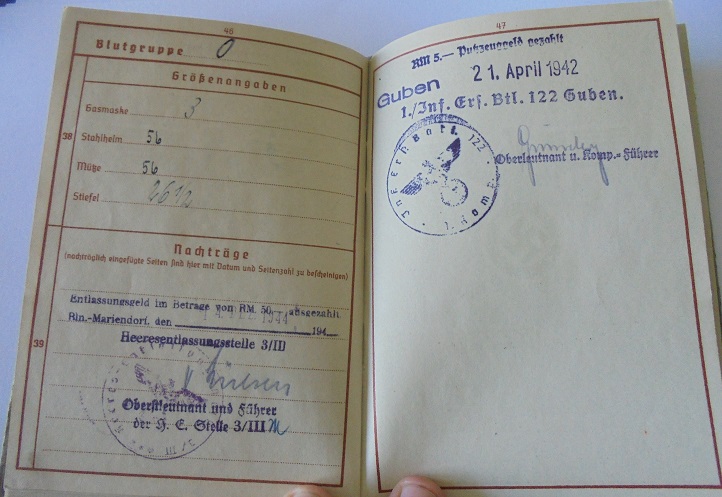 46
Blutgruppe O
Größenangaben
Gasmaske 3
38 Stahlheim 56
Mütze 56
Stiefel
Nachträge
(nachträglich eingefügte Seiten sind hier mit Datum und Seitenzahl zu bescheinigen)
Entlassungsgeld im Betrage von RM. 50, ausgezahlt.
Bln.-Mariendorf, den 1944 194
39 Heeresentlassungsstelle 3/III
Oberstleutnant und Führer
der H. E. Stelle 3/III
47
RM 5.— Putzzeuggeld gezahlt
Guben 21. April 1942
1./Inf. Ers. Btl. 122 Guben.
Oberleutnant u. Komp.-Führer
Inf. Ers. Batl. 122 · 1. Komp.